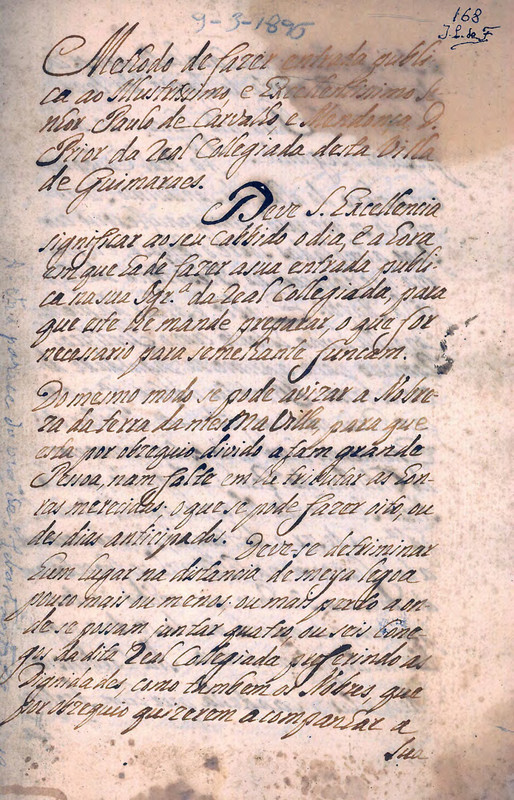 9-3-1896
168
J. L. de F.
Methodo de fazer entrada publi-
ca ao Illustrissimo, e Excellentissimo Se-
nhor Paulo de Carvalho e Mendonça D.
Prior da Real Collegiada desta Villa
de Guimaraes.
Deve S. Excellencia
significar ao seu Cabbido o dia, e a hora
em que ha de fazer a sua entrada publi-
ca na sua Igr.ª da Real Collegiada, para
que este lhe mande preparar, o que for
necessario para semelhante funcam.
Do mesmo modo se pode avizar a Nobre-
za da terra da mesma Villa, para que
esta por obzequio divido a tam grande
Pesoa, nam falte em lhe tributar as hon-
ras merecidas, o que se pode fazer oito, ou
des dias anticipados. Deve-se detriminar
hum lugar na distancia de meya legoa
pouco mais ou menos, ou mais perto aon-
de se possam juntar quatro, ou seis Cone-
gos da dita Real Collegiada preferindo as
Dignidades, como tambem os Nobres que
por obzequio quizerem acompanhar a
Sua